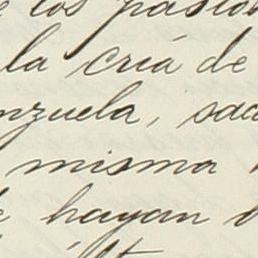 los pasto
la cría de
nzuela, sac
misma
hayan